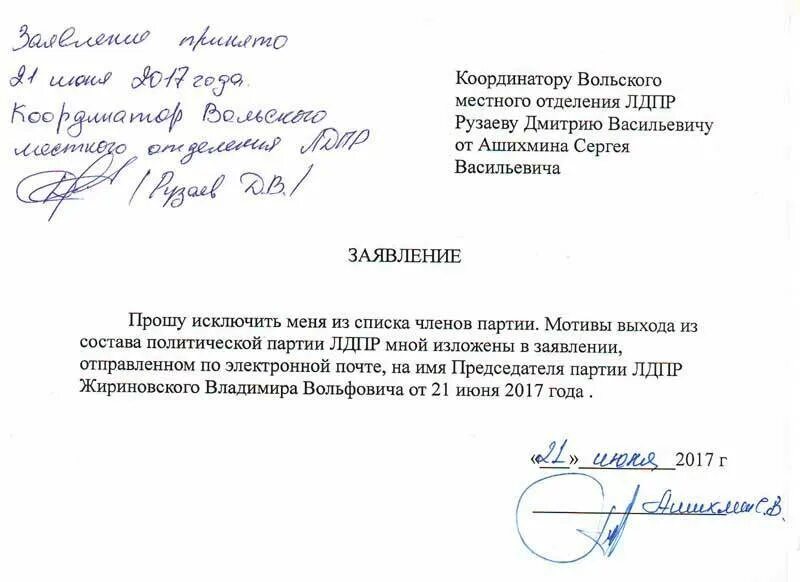 Заявление принято
21 июня 2017 года.
Координатор Вольского
местного отделения ЛДПР
/Рузаев Д.В./
Координатору Вольского
местного отделения ЛДПР
Рузаеву Дмитрию Васильевичу
от Ашихмина Сергея
Васильевича
ЗАЯВЛЕНИЕ
Прошу исключить меня из списка членов партии. Мотивы выхода из
состава политической партии ЛДПР мной изложены в заявлении,
отправленном по электронной почте, на имя Председателя партии ЛДПР
Жириновского Владимира Вольфовича от 21 июня 2017 года .
«21» июня 2017 г
Ашихмин С.В.